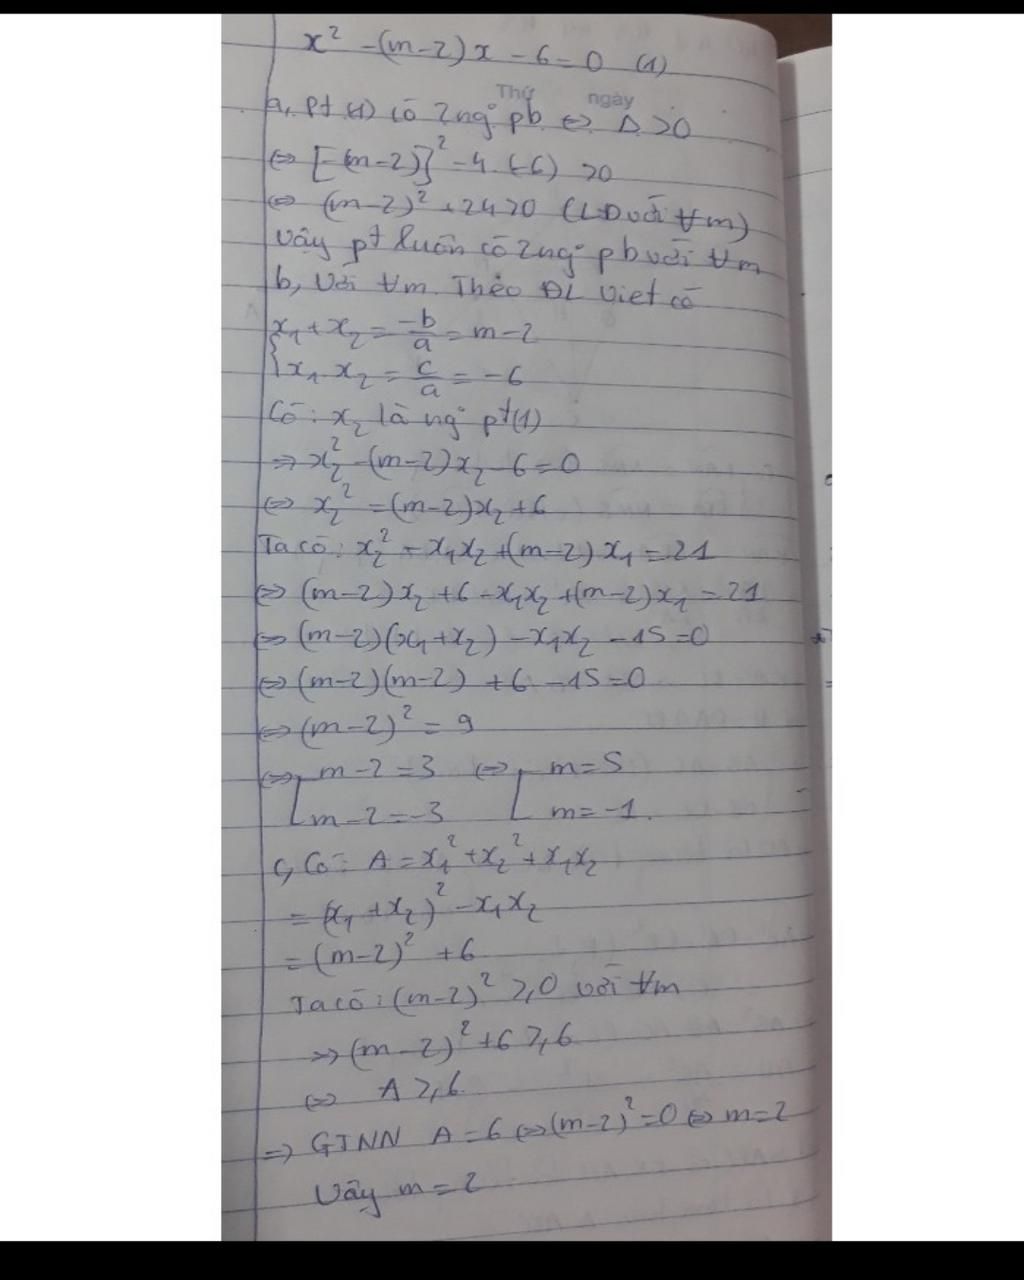 x² - (m-2)x - 6 = 0 (1)
Thứ ngày
a, pt (1) có 2 ng° pb ⇔ Δ > 0
⇔ [-(m-2)]² - 4.(-6) > 0
⇔ (m-2)² + 24 > 0 (LĐ với ∀m)
Vậy pt luôn có 2 ng° pb với ∀m
b, Với ∀m. Theo ĐL Viet có
{ x₁ + x₂ = -b/a = m-2
x₁.x₂ = c/a = -6
Có: x₂ là ng° pt (1)
⇒ x₂² - (m-2)x₂ - 6 = 0
⇔ x₂² = (m-2)x₂ + 6
Ta có: x₂² - x₁x₂ + (m-2)x₁ = 21
⇔ (m-2)x₂ + 6 - x₁x₂ + (m-2)x₁ = 21
⇔ (m-2)(x₁+x₂) - x₁x₂ - 15 = 0
⇔ (m-2)(m-2) + 6 - 15 = 0
⇔ (m-2)² = 9
⇔ [ m-2 = 3 ⇔ [ m = 5
m-2 = -3 m = -1.
c, Có: A = x₁² + x₂² + x₁x₂
= (x₁ + x₂)² - x₁x₂
= (m-2)² + 6
Ta có: (m-2)² ≥ 0 với ∀m
⇒ (m-2)² + 6 ≥ 6
⇔ A ≥ 6
⇒ GTNN A = 6 ⇔ (m-2)² = 0 ⇔ m = 2
Vậy m = 2